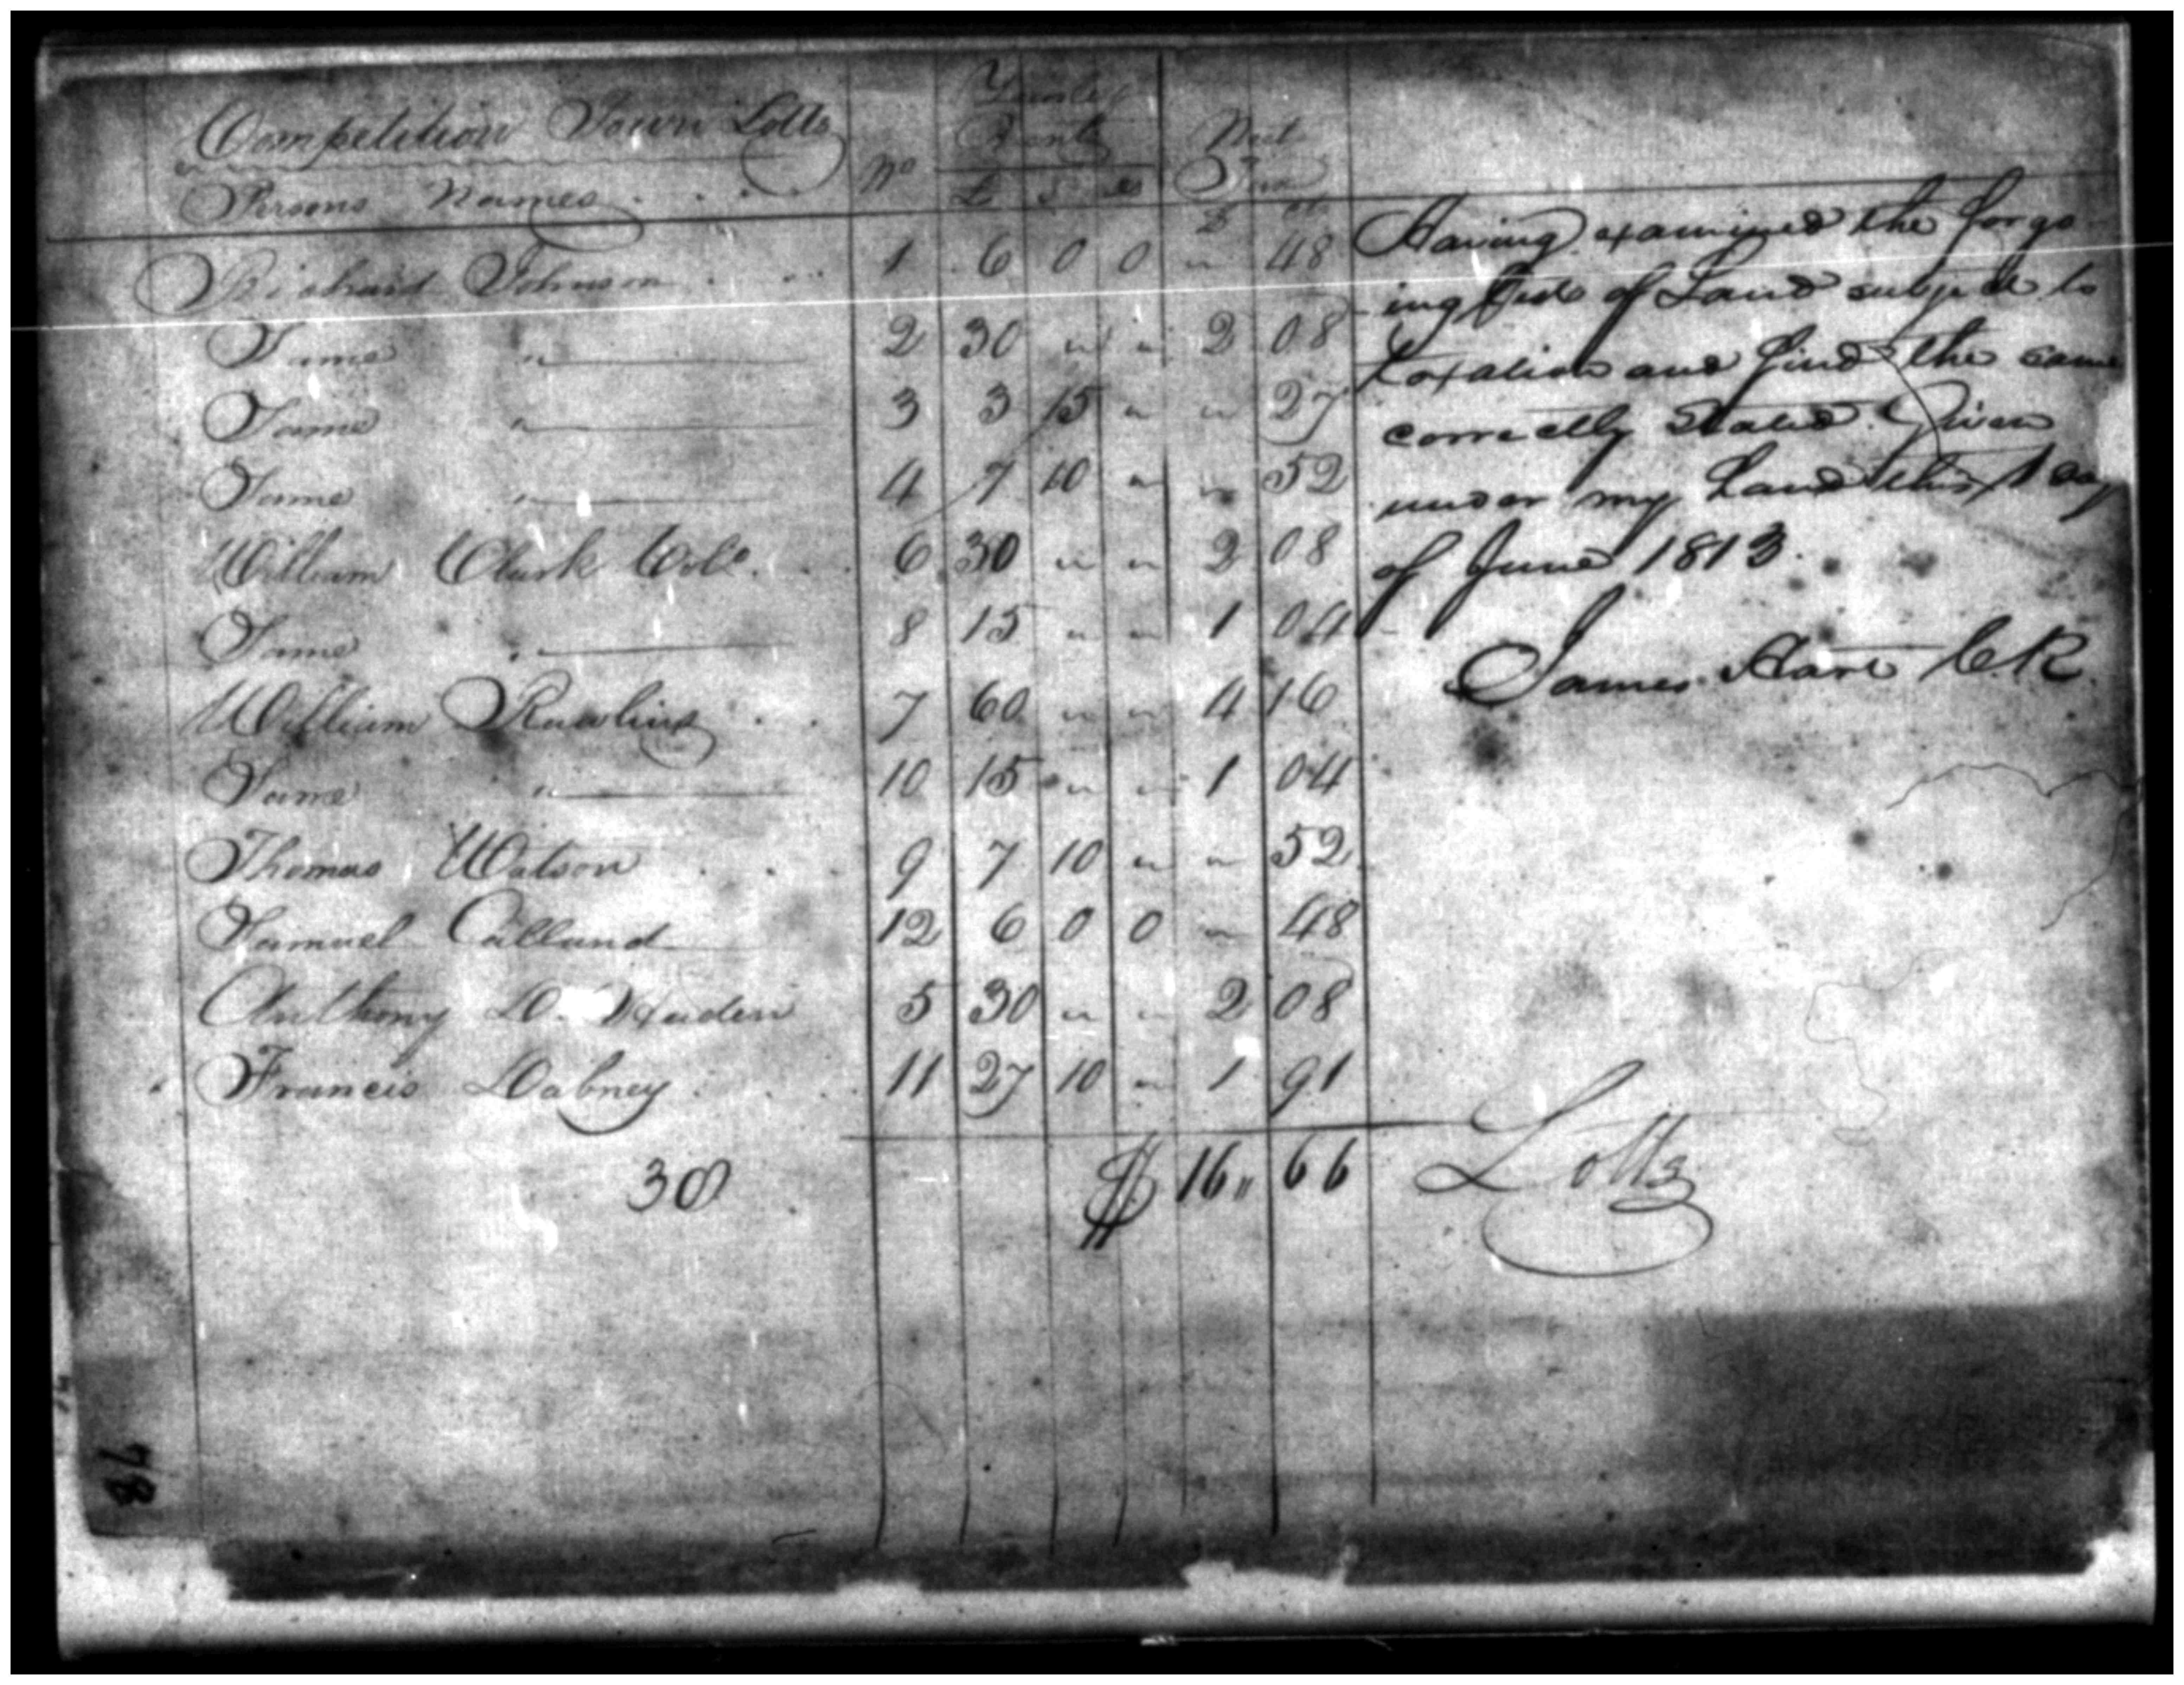 Competition Town Lotts
Persons Names
No
Yearly
Rents
£ S d
Neat
Tax
$ cts
Richard Johnson . . . 1 6 0 0 " 48
Same " 2 30 " " 2 08
Same " 3 3 15 " " 27
Same " 4 7 10 " " 52
William Clark Colo. . . 6 30 " " 2 08
Same " 8 15 " " 1 04
William Rawlins . . . 7 60 " " 4 16
Same " 10 15 " " 1 04
Thomas Watson . . . 9 7 10 " " 52
Samuel Calland 12 6 0 0 " 48
Anthony D. Haden 5 30 " " 2 08
Francis Dabney . . . 11 27 10 " 1 91
30 $ 16 " 66 Lotts
Having examined the forgo
ing of Land subject to
taxation and find the same
correctly Stated. Given
under my hand this day
of June 1813.
James Hart C.R
78